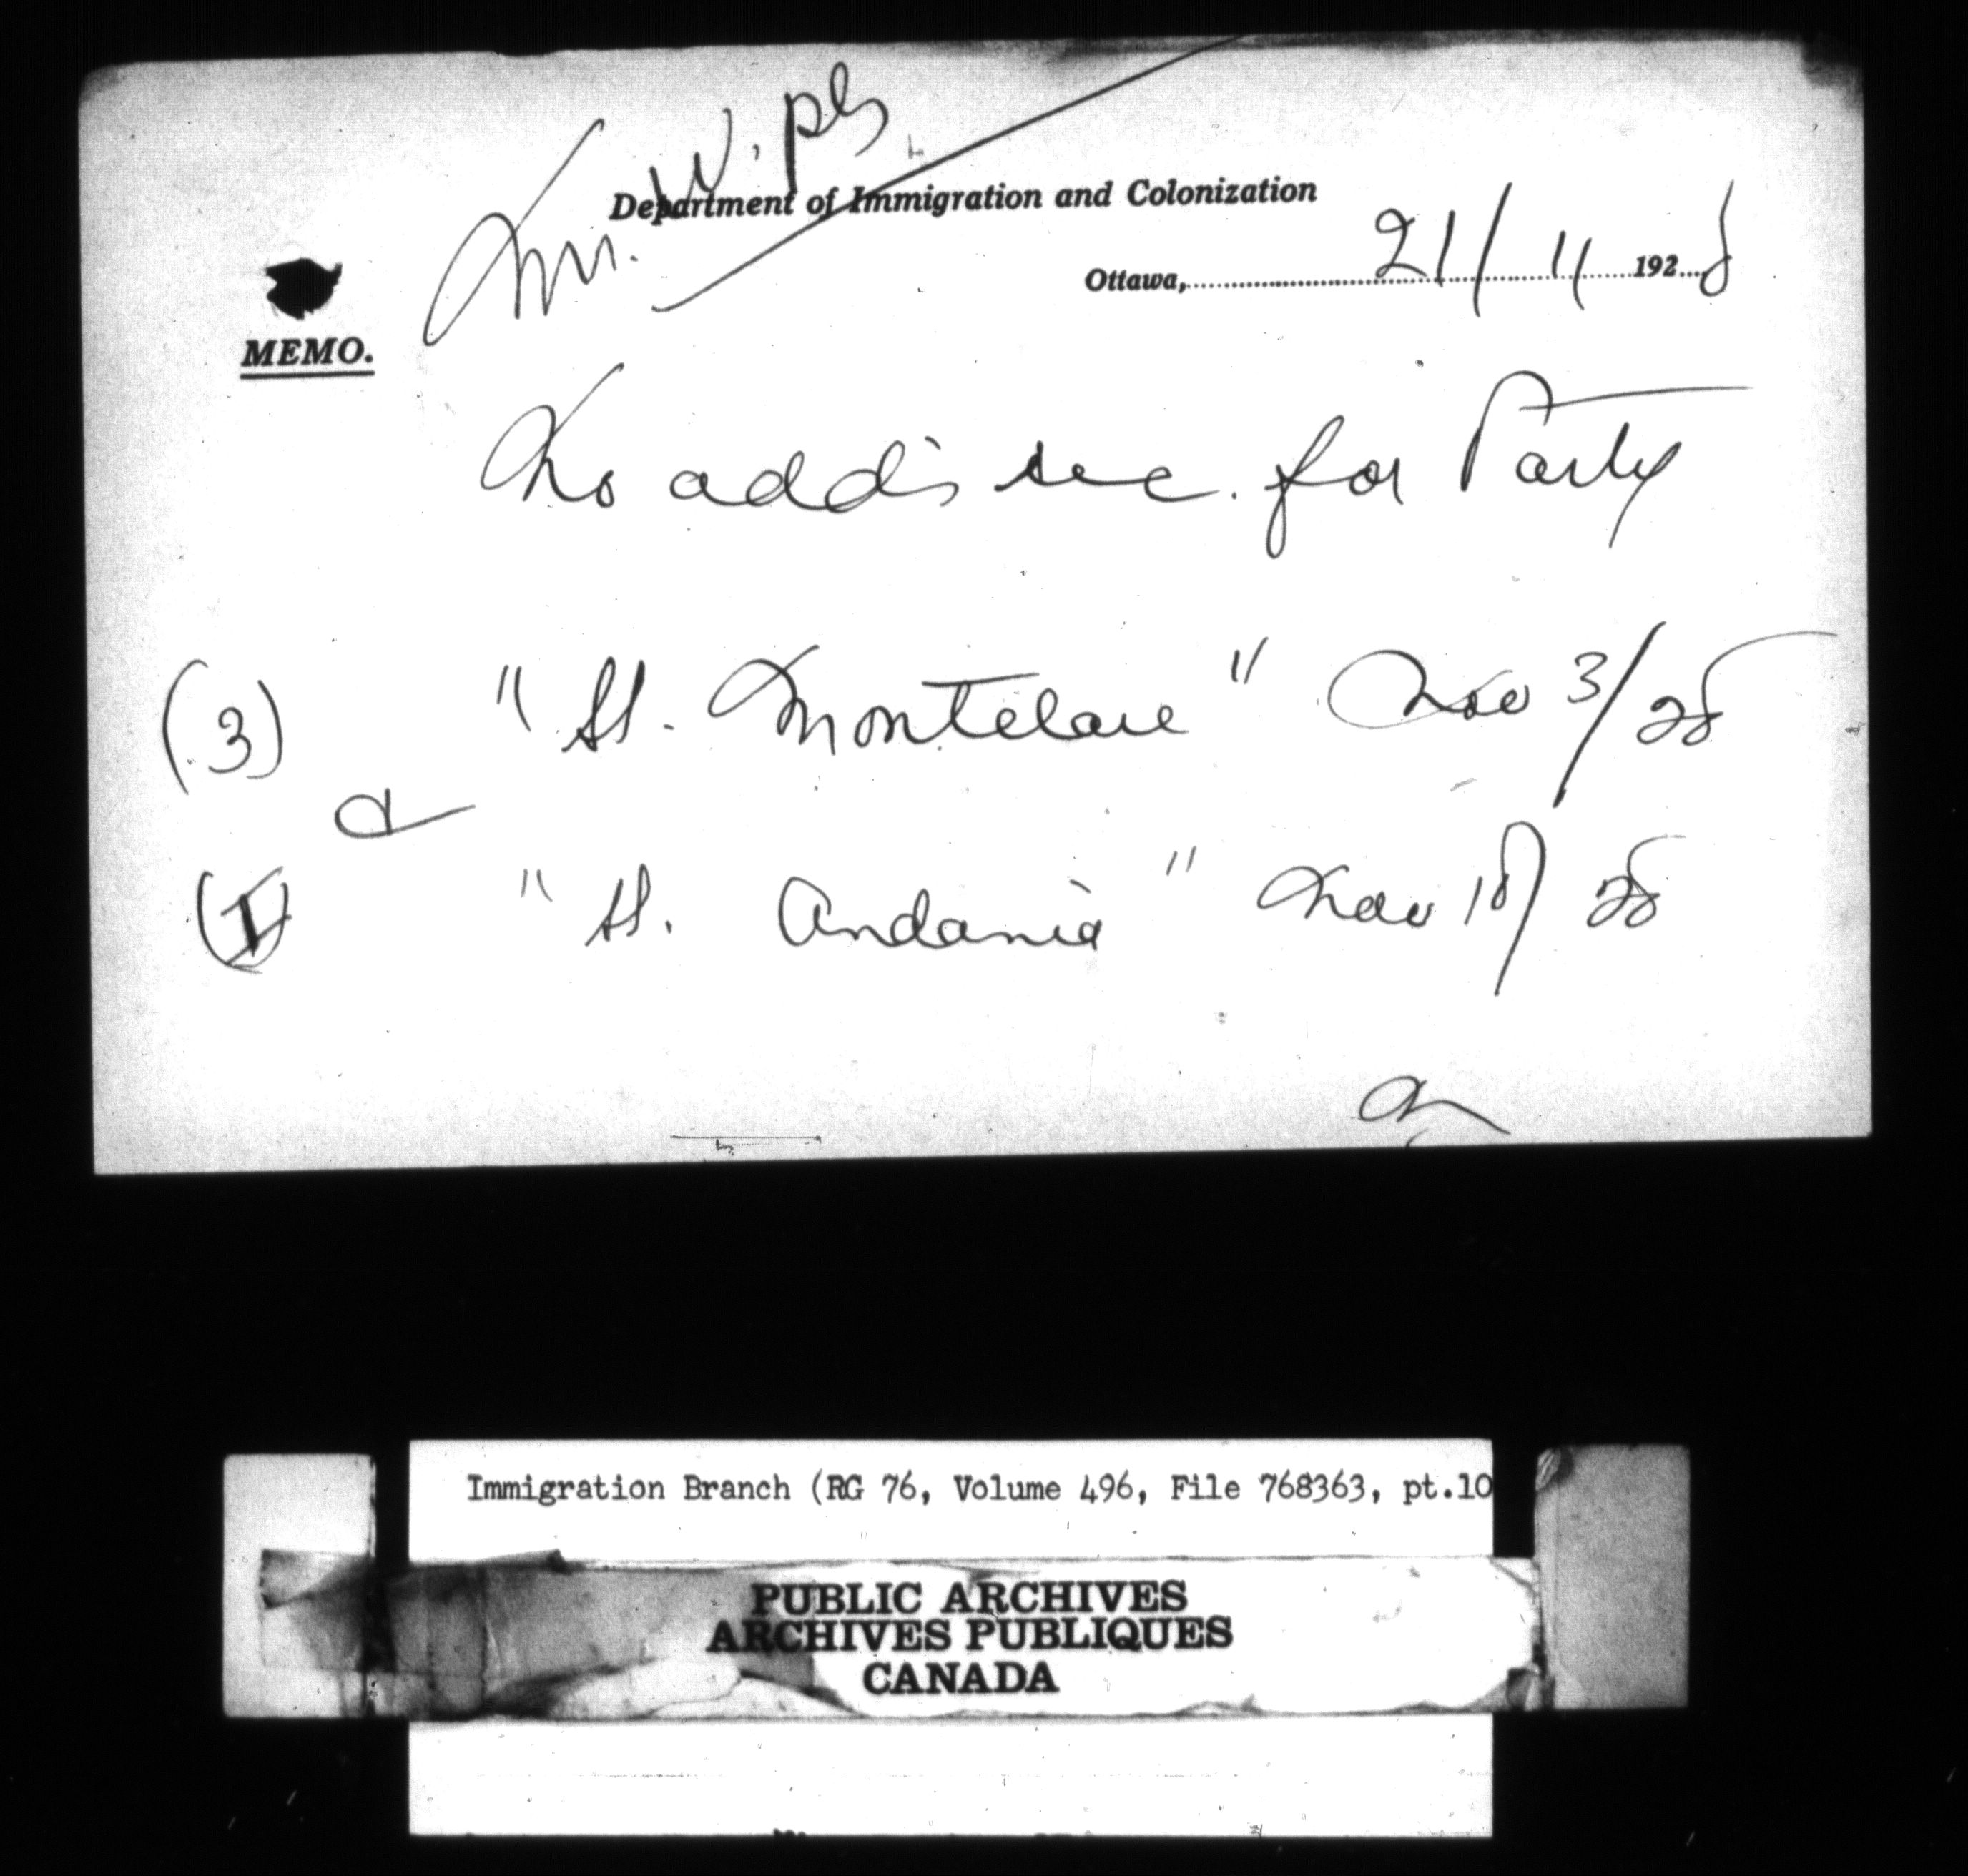 Mr. W. pls
Department of Immigration and Colonization
Ottawa, 21/11 1928
MEMO.
No add's rec. for Party
(3) "SS. Montclare" Nov 3/28
&
(1) "SS. Andania" Nov 18/28
Immigration Branch (RG 76, Volume 496, File 768363, pt.10
PUBLIC ARCHIVES
ARCHIVES PUBLIQUES
CANADA